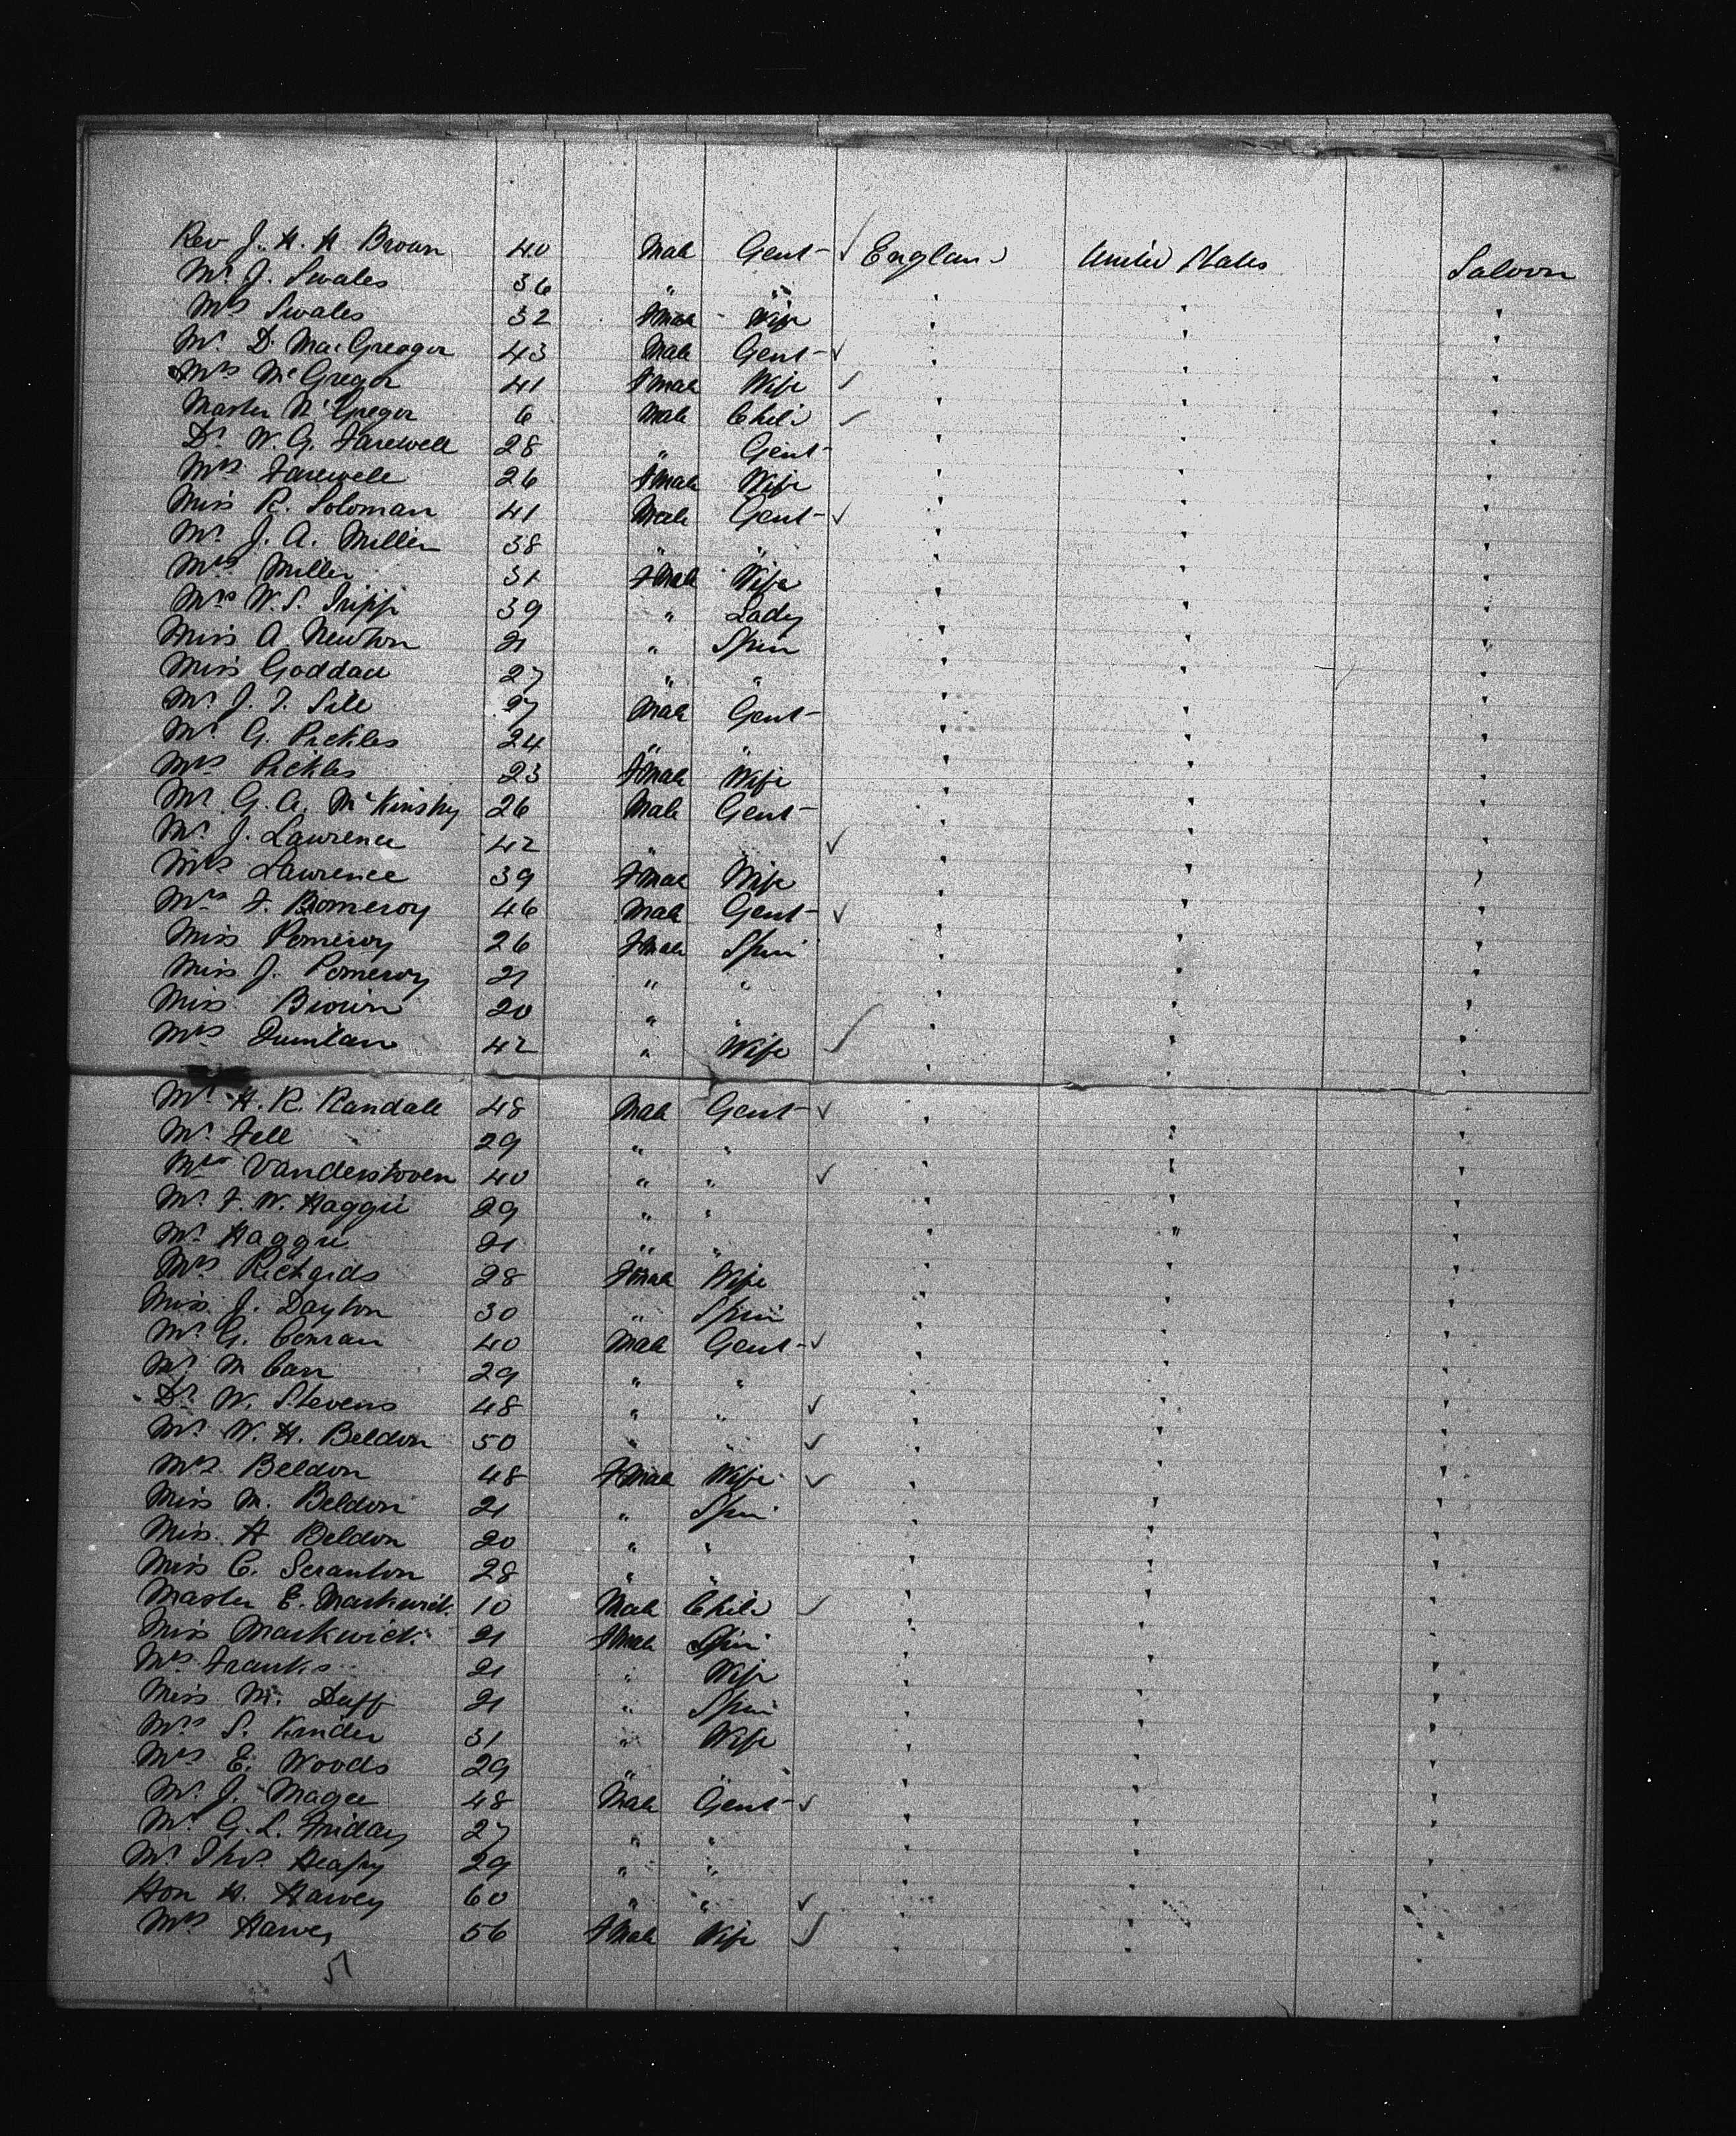 Rev J. H. H. Brown 40 Male Gent England United States Saloon
Mr J. Swales 36 " "
Mrs Swales 32 Fmale Wife
Mr D. MacGreggor 43 Male Gent
Mrs McGregor 41 Fmale Wife
Master McGregor 6 Male Child
Dr W. G. Farewell 28 " Gent
Mrs Farewell 26 Fmale Wife
Miss R. Soloman 41 Male Gent
Mr J. A. Miller 38 " "
Mrs Miller 31 Fmale Wife
Mrs W. S. Tripp 39 " Lady
Miss A Newton 21 " Spin
Miss 27 " "
Mr J. T. Sill 27 Male Gent
Mr G. Pickles 24 " "
Mrs Pickles 23 Fmale Wife
Mr G. A. 26 Male Gent
Mr J. Lawrence 42 " "
Mrs Lawrence 39 Fmale Wife
F. Pomeroy 46 Male Gent
Miss Pomeroy 26 Fmale Spin
Miss J. Pomeroy 21 " "
Miss Brown 20 " "
Mrs 42 " Wife
Mr H. R. Randall 48 Male Gent
Mr Fell 29 " "
40 " "
Mr F. W. Haggie 29 " "
Mr Haggie 21 " "
Mrs Richards 28 Fmale Wife
Miss J. Dayton 30 " Spin
Mr G. Conran 40 Male Gent
Mr M Carr 29 " "
Dr W. Stevens 48 " "
Mr W. H. Beldon 50 " "
Mrs Beldon 48 Fmale Wife
Miss M. Beldon 21 " Spin
Miss H Beldon 20 " "
Miss C. Scranton 28 " "
Master E. Markwick 10 Male Child
Miss Markwick 21 Fmale Spin
Mrs Franks 21 " Wife
Miss M. Duff 21 " Spin
Mrs S. Kinder 31 " Wife
Mrs E. Woods 29 " "
Mr J. Magee 48 Male Gent
Mr G. L. Friday 27 " "
Mr Thos. Heafy 29 " "
Hon H. Harvey 60 " "
Mrs Harvey 56 Fmale Wife
51